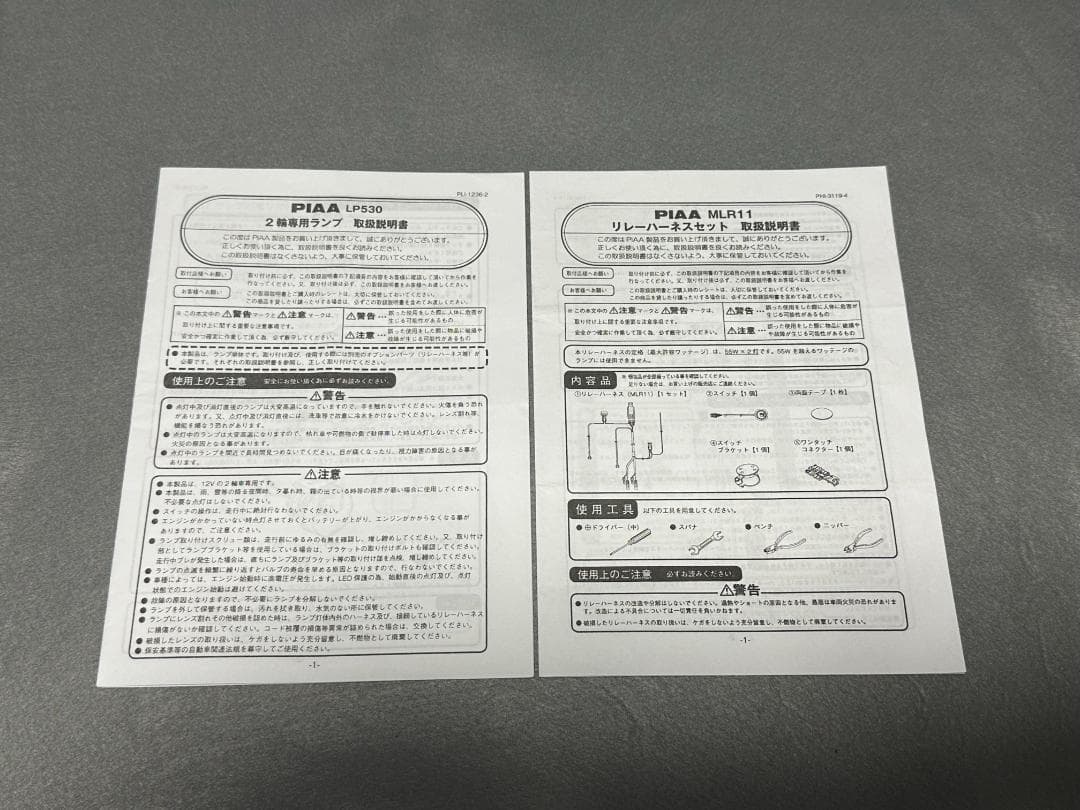 PLI-1236-2
PIAA LP530
2輪専用ランプ 取扱説明書
この度はPIAA製品をお買い上げ頂きまして、誠にありがとうございます。
正しくお使い頂く為に、取扱説明書を良くお読みください。
この取扱説明書はなくさないよう、大事に保管しておいてください。
取付店様へお願い
取り付け前に必ず、この取扱説明書の下記項目の内容をお客様に確認して頂いてから作業を
行なってください。又、取り付け後は必ず、この取扱説明書をお客様へお渡しください。
お客様へお願い
この取扱説明書とご購入時のレシートは、大切に保管しておいてください。
この商品を貸したり譲ったりする場合は、必ずこの取扱説明書を含めてお渡しください。
※この本文中の⚠警告マークと⚠注意マークは、
取り付け上に関する重要な注意事項です。
安全かつ確実に作業して頂く為、必ず厳守してください。
⚠警告… 誤った使用をした際に人体に危害が
生じる可能性があるもの
⚠注意… 誤った使用をした際に物品に破損や
故障が生じる可能性があるもの
● 本製品は、ランプ単体です。取り付け及び、使用する際には別売のオプションパーツ（リレーハーネス等）が
必要です。それぞれの取扱説明書を参照し、正しく取り付けてください。
使用上のご注意 安全にお使い頂く為に必ずお読みください。
⚠警告
● 点灯中及び消灯直後のランプは大変高温になっていますので、手を触れないでください。火傷を負う恐れ
があります。又、点灯中及び消灯直後には、洗車等で故意に冷水をかけないでください。レンズ割れ等、
機能を損なう恐れがあります。
● 点灯中のランプは大変高温になりますので、枯れ草や可燃物の側で駐停車した時は点灯しないでください。
火災の原因となる事があります。
● 点灯中のランプを間近で長時間見つめないでください。目が痛くなったり、視力障害の原因となる事が
あります。
⚠注意
● 本製品は、12Vの2輪車専用です。
● 本製品は、雨、雪等の降る夜間時、夕暮れ時、霧の出ている時等の視界が悪い場合に使用してください。
不必要な点灯はしないでください。
● スイッチの操作は、走行中に絶対行なわないでください。
● エンジンがかかっていない時点灯させておくとバッテリーが上がり、エンジンがかからなくなる事が
ありますので、ご注意ください。
● ランプ取り付けスクリュー類は、走行前にゆるみの有無を確認し、増し締めしてください。又、取り付け
部としてランプブラケット等を使用している場合は、ブラケットの取り付けボルトも確認してください。
走行中ブレが発生した場合は、直ちにランプ及びブラケット等の取り付け部を点検、増し締めしてください。
● ランプの点滅を頻繁に繰り返すとバルブの寿命を早める原因となりますので、行なわないでください。
● 車種によっては、エンジン始動時に高電圧が発生します。LED保護の為、始動直後の点灯及び、点灯
状態でのエンジン始動は避けてください。
● 故障の原因となりますので、不必要にランプを分解しないでください。
● ランプを外して保管する場合は、汚れを拭き取り、水気のない所に保管してください。
● ランプにレンズ割れその他破損を認めた時は、ランプ灯体内外のハーネス及び、接続しているリレーハーネス
に損傷がないか確認してください。コード被覆の損傷等異常が認められた場合は、交換してください。
● 破損したレンズの取り扱いは、ケガをしないよう充分留意し、不燃物として廃棄してください。
● 保安基準等の自動車関連法規を尊守してご使用ください。
-1-
PHI-3119-4
PIAA MLR11
リレーハーネスセット 取扱説明書
この度はPIAA製品をお買い上げ頂きまして、誠にありがとうございます。
正しくお使い頂く為に、取扱説明書を良くお読みください。
この取扱説明書はなくさないよう、大事に保管しておいてください。
取付店様へお願い
取り付け前に必ず、この取扱説明書の下記項目の内容をお客様に確認して頂いてから作業を
行なってください。又、取り付け後は必ず、この取扱説明書をお客様へお渡しください。
お客様へお願い
この取扱説明書とご購入時のレシートは、大切に保管しておいてください。
この商品を貸したり譲ったりする場合は、必ずこの取扱説明書を含めてお渡しください。
※この本文中の⚠注意マークと⚠警告マークは、
取り付け上に関する重要な注意事項です。
安全かつ確実に作業して頂く為、必ず厳守してください。
⚠警告… 誤った使用をした際に人体に危害が
生じる可能性があるもの
⚠注意… 誤った使用をした際に物品に破損や
故障が生じる可能性があるもの
本リレーハーネスの定格（最大許容ワッテージ）は、55W×2灯です。55Wを越えるワッテージの
ランプには使用できません。
内容品
※梱包品が全部揃っている事を確認してください。
足りない場合は、お買い上げの販売店にご連絡ください。
①リレーハーネス（MLR11）【1セット】
②スイッチ【1個】
③両面テープ【1枚】
④スイッチ
ブラケット【1個】
⑤ワンタッチ
コネクター【1個】
使用工具 以下の工具を用意してください。
● ⊕ドライバー（中）
● スパナ
● ペンチ
● ニッパー
使用上のご注意 必ずお読みください。
⚠警告
● リレーハーネスの改造や分解はしないでください。過熱やショートの原因となる他、最悪は車両火災の恐れがありま
す。改造による不具合については一切責任を負いかねます。
● 破損したリレーハーネスの取り扱いは、ケガをしないよう充分留意し、不燃物として廃棄してください。
-1-